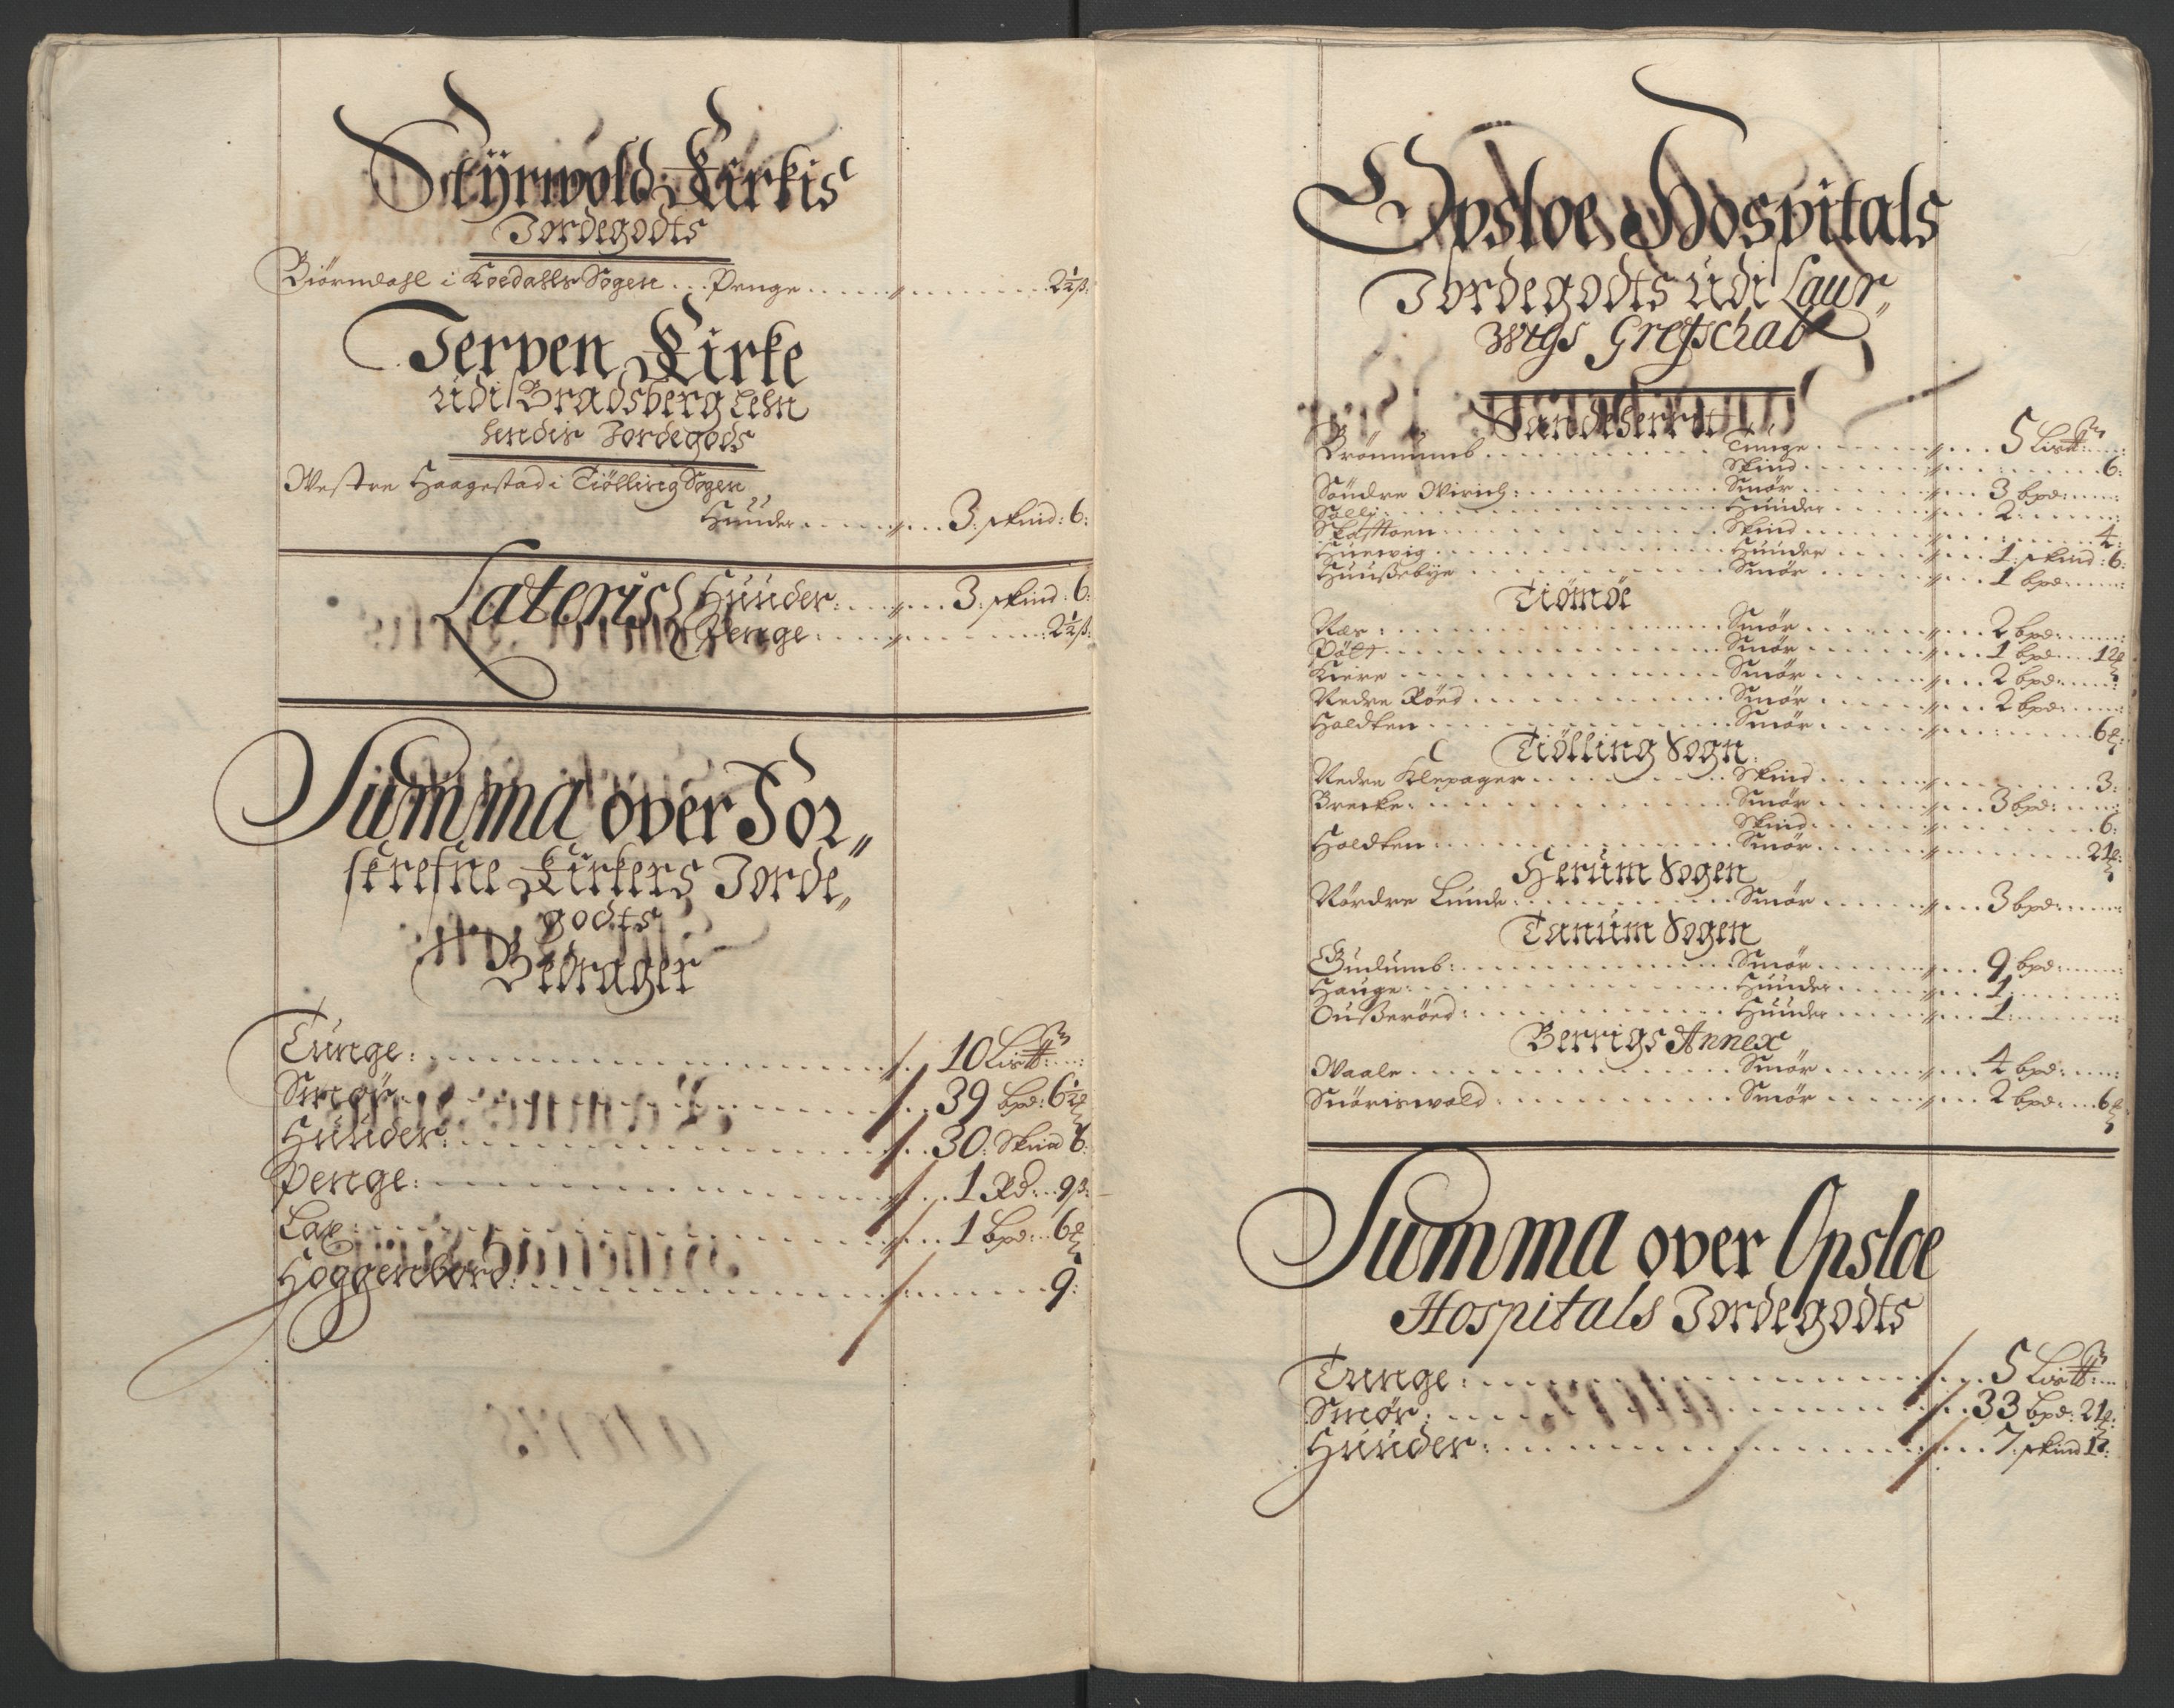 Styrwold Kirkis
Jordegodts
Biörndahl i Koedahls Sogen . . Penge . . . . 2½ ß:
Jerpen Kirke
udi Bradsberg Lehn
hendis Jordegods
Westre Haagestad i Tiölling Sogen
Huuder . . . . 3: skind: 6:
Lateris Huuder: . . . . 3: skind: 6:
Penge: . . . . 2½ ß:
Summa over For„
skrefne Kirkers Jorde„
godts
Bedrager
Tunge: . . . . 10 Lis℔:
Smør . . . . 39 bpd: 6½
Huuder: . . . . 30: Skind 6:
Penge: . . . . 1 Rd: . . 9 ß:
Lax: . . . . 1 bpd: . . 6
Hoggenebord: . . . . 9:
Opsloe Hospitals
Jordegodts udi Laur„
wigs Grefschab
Sandeherrit
Brönnumb . . . . Tunge . . . . 5 Lis℔:
Skind . . . . 6:
Söndre Wirich: . . . . Smør . . . . 3 bpd:
Sölli: . . . . Huuder . . . . 2:
Skafftoen: . . . . Skind . . . . 4:
Huervig . . . . Huuder . . . . 1: skind: 6:
Huußebye . . . . Smør . . . . 1 bpd:
Tiömöe
Næs: . . . . Smør . . . . 2 bpd:
Pölt . . . . Smør . . . . 1 bpd: . . 12
Kiere . . . . Smør . . . . 2 bpd:
Nedre Röed . . . . Smør . . . . 2 bpd:
Holdten . . . . Smør . . . . 6
Tiölling Sogn:
Nedre Klepager . . . . Skind . . . . 3:
Brecke: . . . . Smør . . . . 3 bpd:
Skind . . . . 6:
Holdten . . . . Smør . . . . 21
Herum Sogen
Nördre Lunde: . . . . Smør . . . . 3 bpd:
Tanum Sogen
Gudumb: . . . . Smør . . . . 9 bpd:
Hauge: . . . . Huuder . . . . 1:
Oußeröed: . . . . Huuder . . . . 1:
Berrigs Annex
Waale . . . . Smør . . . . 4 bpd:
Snöriswold: . . . . Smør . . . . 2 bpd: . . 6
Summa over Opsloe
Hospitals Jordegodts
Tunge: . . . . 5 Lis℔:
Smør: . . . . 33 bpd: 21
Huuder: . . . . 7: skind 1: